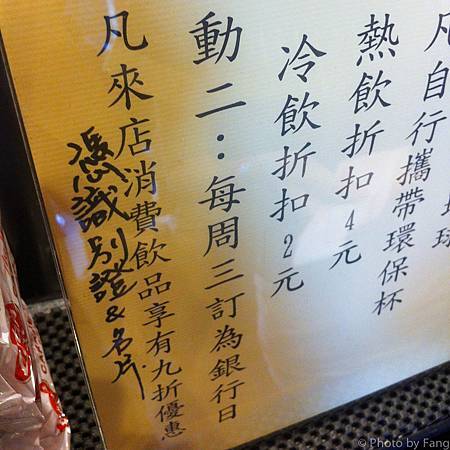 凡自行攜帶環保杯
地球
熱飲折扣4元
冷飲折扣2元
動二：每周三訂為銀行日
凡來店消費飲品享有九折優惠
憑識別證&名片
© Photo by Fang